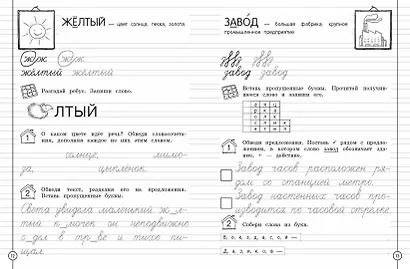 ЖЁЛТЫЙ — цвет солнца, песка, золота.
жок жок
жёлтый жёлтый
Разгадай ребус. Запиши слово.
ЛТЫЙ
1 О каком цвете идёт речь? Обведи словосочета-
ния, дополняя каждое из них этим словом.
солнце, лимо-
на, цыплёнок.
2 Обведи текст, разделяя его на предложения.
Вставь пропущенные буквы.
Света увидела маленький ж_л-
тый к_мочек он неподвижно
с_дел в тр_ве и тихо пи-
щал.
12
ЗАВОД — большая фабрика, крупное
промышленное предприятие.
завод завод
Вставь пропущенные буквы. Прочитай получив-
шееся слово и запиши его.
1 Обведи предложения. Поставь ✓ рядом с предло-
жением, в котором слово завод обозначает зда-
ние, + — действие.
Завод часов расположен ря-
дом со станцией метро.
Завод настенных часов про-
изводится по часовой стрелке.
2 Собери слова из букв.
13